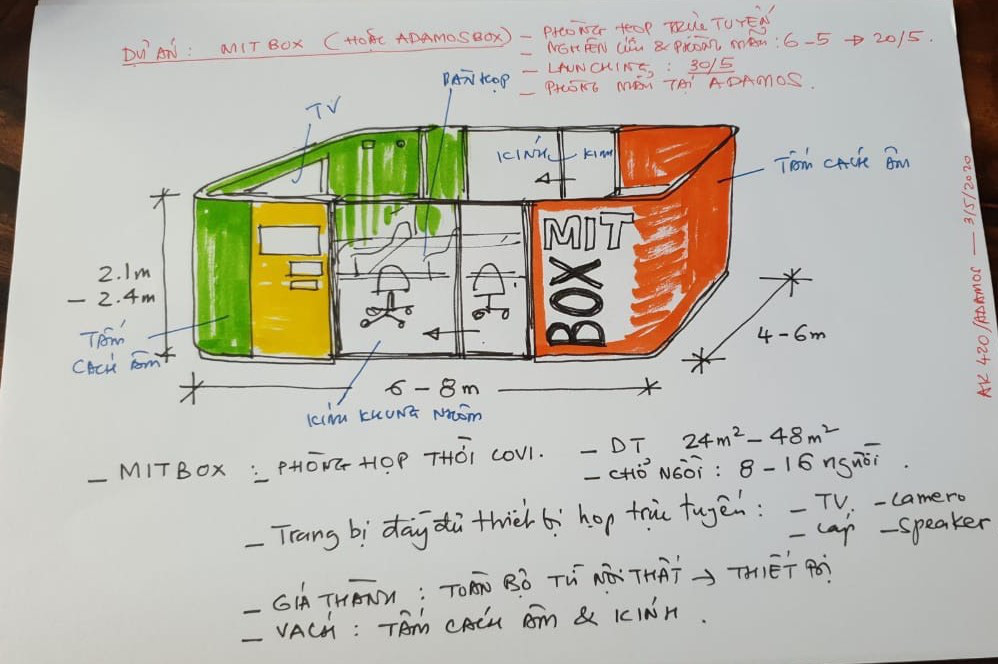 DỰ ÁN : MITBOX (HOẶC ADAMOSBOX)
- PHÒNG HỌP TRỰC TUYẾN
- NGHIÊN CỨU & PHÒNG MẪU : 6-5 → 20/5.
- LAUNCHING : 30/5
- PHÒNG MẪU TẠI ADAMOS.
TV
BÀN HỌP
KINH
KINH
TẤM CÁCH ÂM
2.1m
- 2.4m
MIT
BOX
TẤM
CÁCH ÂM
4-6m
6-8m
KÍNH KHUNG NHÔM
AK 420/ADAMOS — 3/5/2020
- MITBOX : PHÒNG HỌP THỜI COVI.
- DT 24m² - 48m²
- CHỔ NGỒI : 8 - 16 người.
- Trang bị đầy đủ thiết bị họp trực tuyến : - TV. - Camero
- Cáp - Speaker
- GIÁ THÀNH : TOÀN BỘ TỪ NỘI THẤT → THIẾT BỊ
- VÁCH : TẤM CÁCH ÂM & KÍNH.